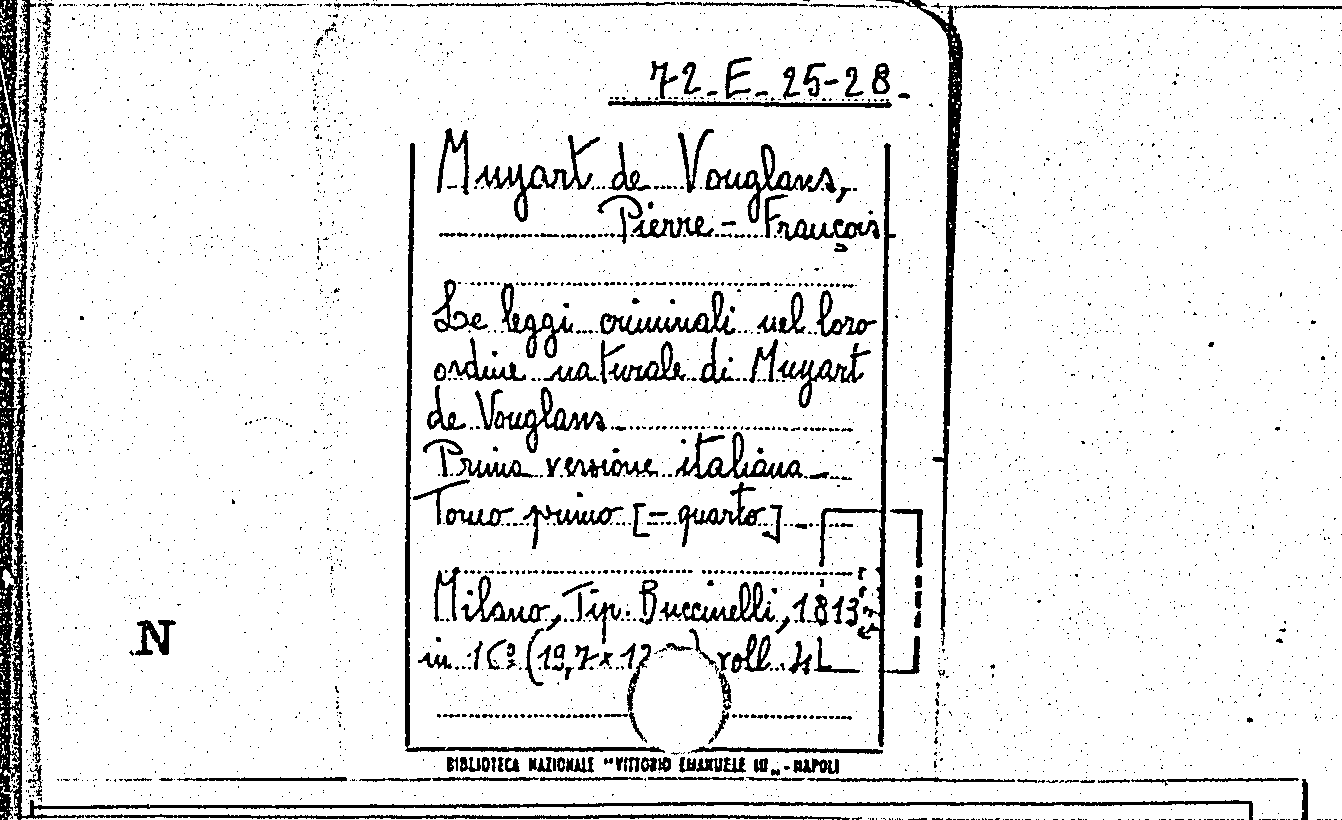 72.E.25-28.
Muyart de Vouglans,
Pierre-François
Le leggi criminali nel loro
ordine naturale di Muyart
de Vouglans.
Prima versione italiana
Tomo primo [-quarto].
Milano, Tip. Buccinelli, 1813
in 16º (19,7x12 voll. 4
N
BIBLIOTECA NAZIONALE "VITTORIO EMANUELE III" - NAPOLI